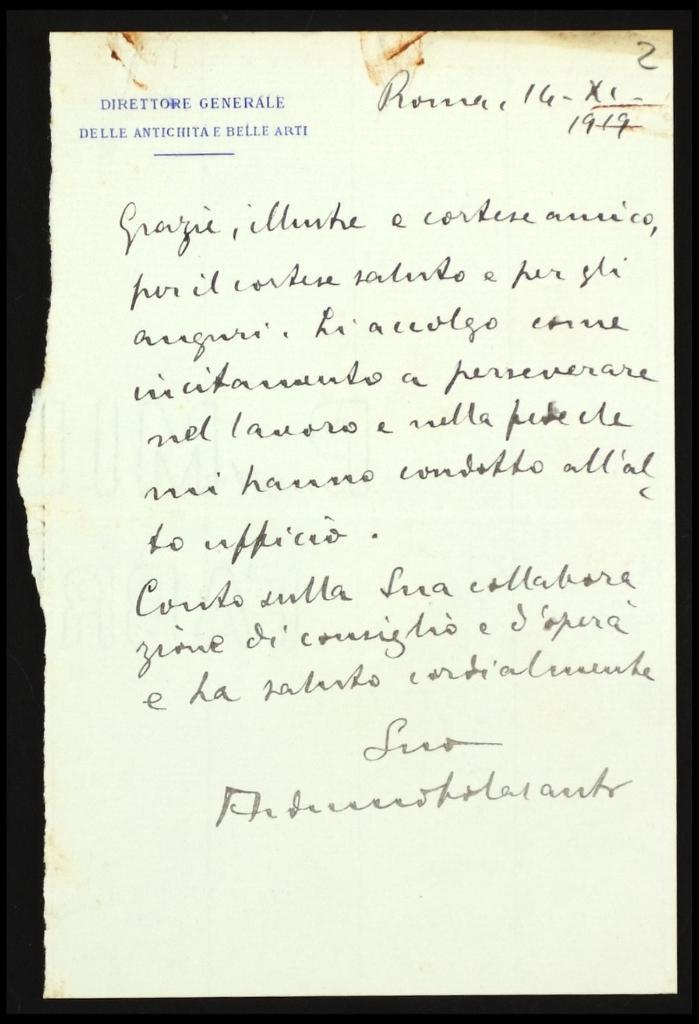 2
DIRETTORE GENERALE
DELLE ANTICHITÀ E BELLE ARTI
Roma, 14-XI-
1919
Grazie, illustre e cortese amico,
per il cortese saluto e per gli
auguri. Li accolgo come
incitamento a perseverare
nel lavoro e nella fede che
mi hanno condotto all'al
to ufficio.
Conto sulla Sua collabora
zione di consiglio e d'opera
e La saluto cordialmente
Suo
Arduino Colasanti